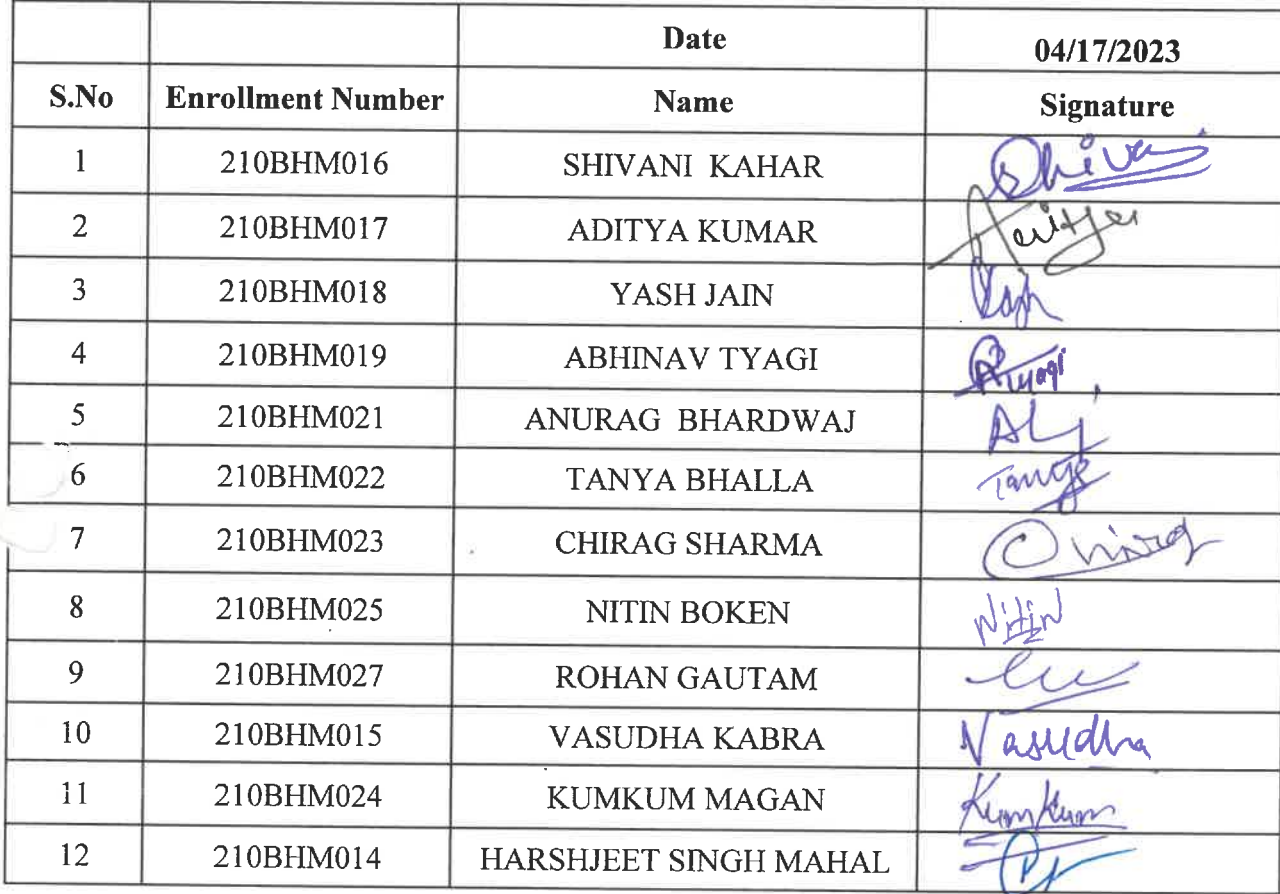 Date 04/17/2023
S.No Enrollment Number Name Signature
1 210BHM016 SHIVANI KAHAR Shivani
2 210BHM017 ADITYA KUMAR Aditya
3 210BHM018 YASH JAIN Yash
4 210BHM019 ABHINAV TYAGI
5 210BHM021 ANURAG BHARDWAJ
6 210BHM022 TANYA BHALLA Tanya
7 210BHM023 CHIRAG SHARMA Chirag
8 210BHM025 NITIN BOKEN Nitin
9 210BHM027 ROHAN GAUTAM
10 210BHM015 VASUDHA KABRA Vasudha
11 210BHM024 KUMKUM MAGAN Kumkum
12 210BHM014 HARSHJEET SINGH MAHAL